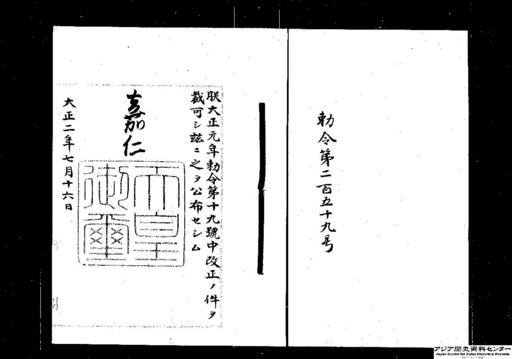 勅令第二百五十九号
朕大正元年勅令第十九號中改正ノ件ヲ
裁可シ茲ニ之ヲ公布セシム
嘉仁
天皇
御璽
大正二年七月十六日
アジア歴史資料センター
Japan Center for Asian Historical Records